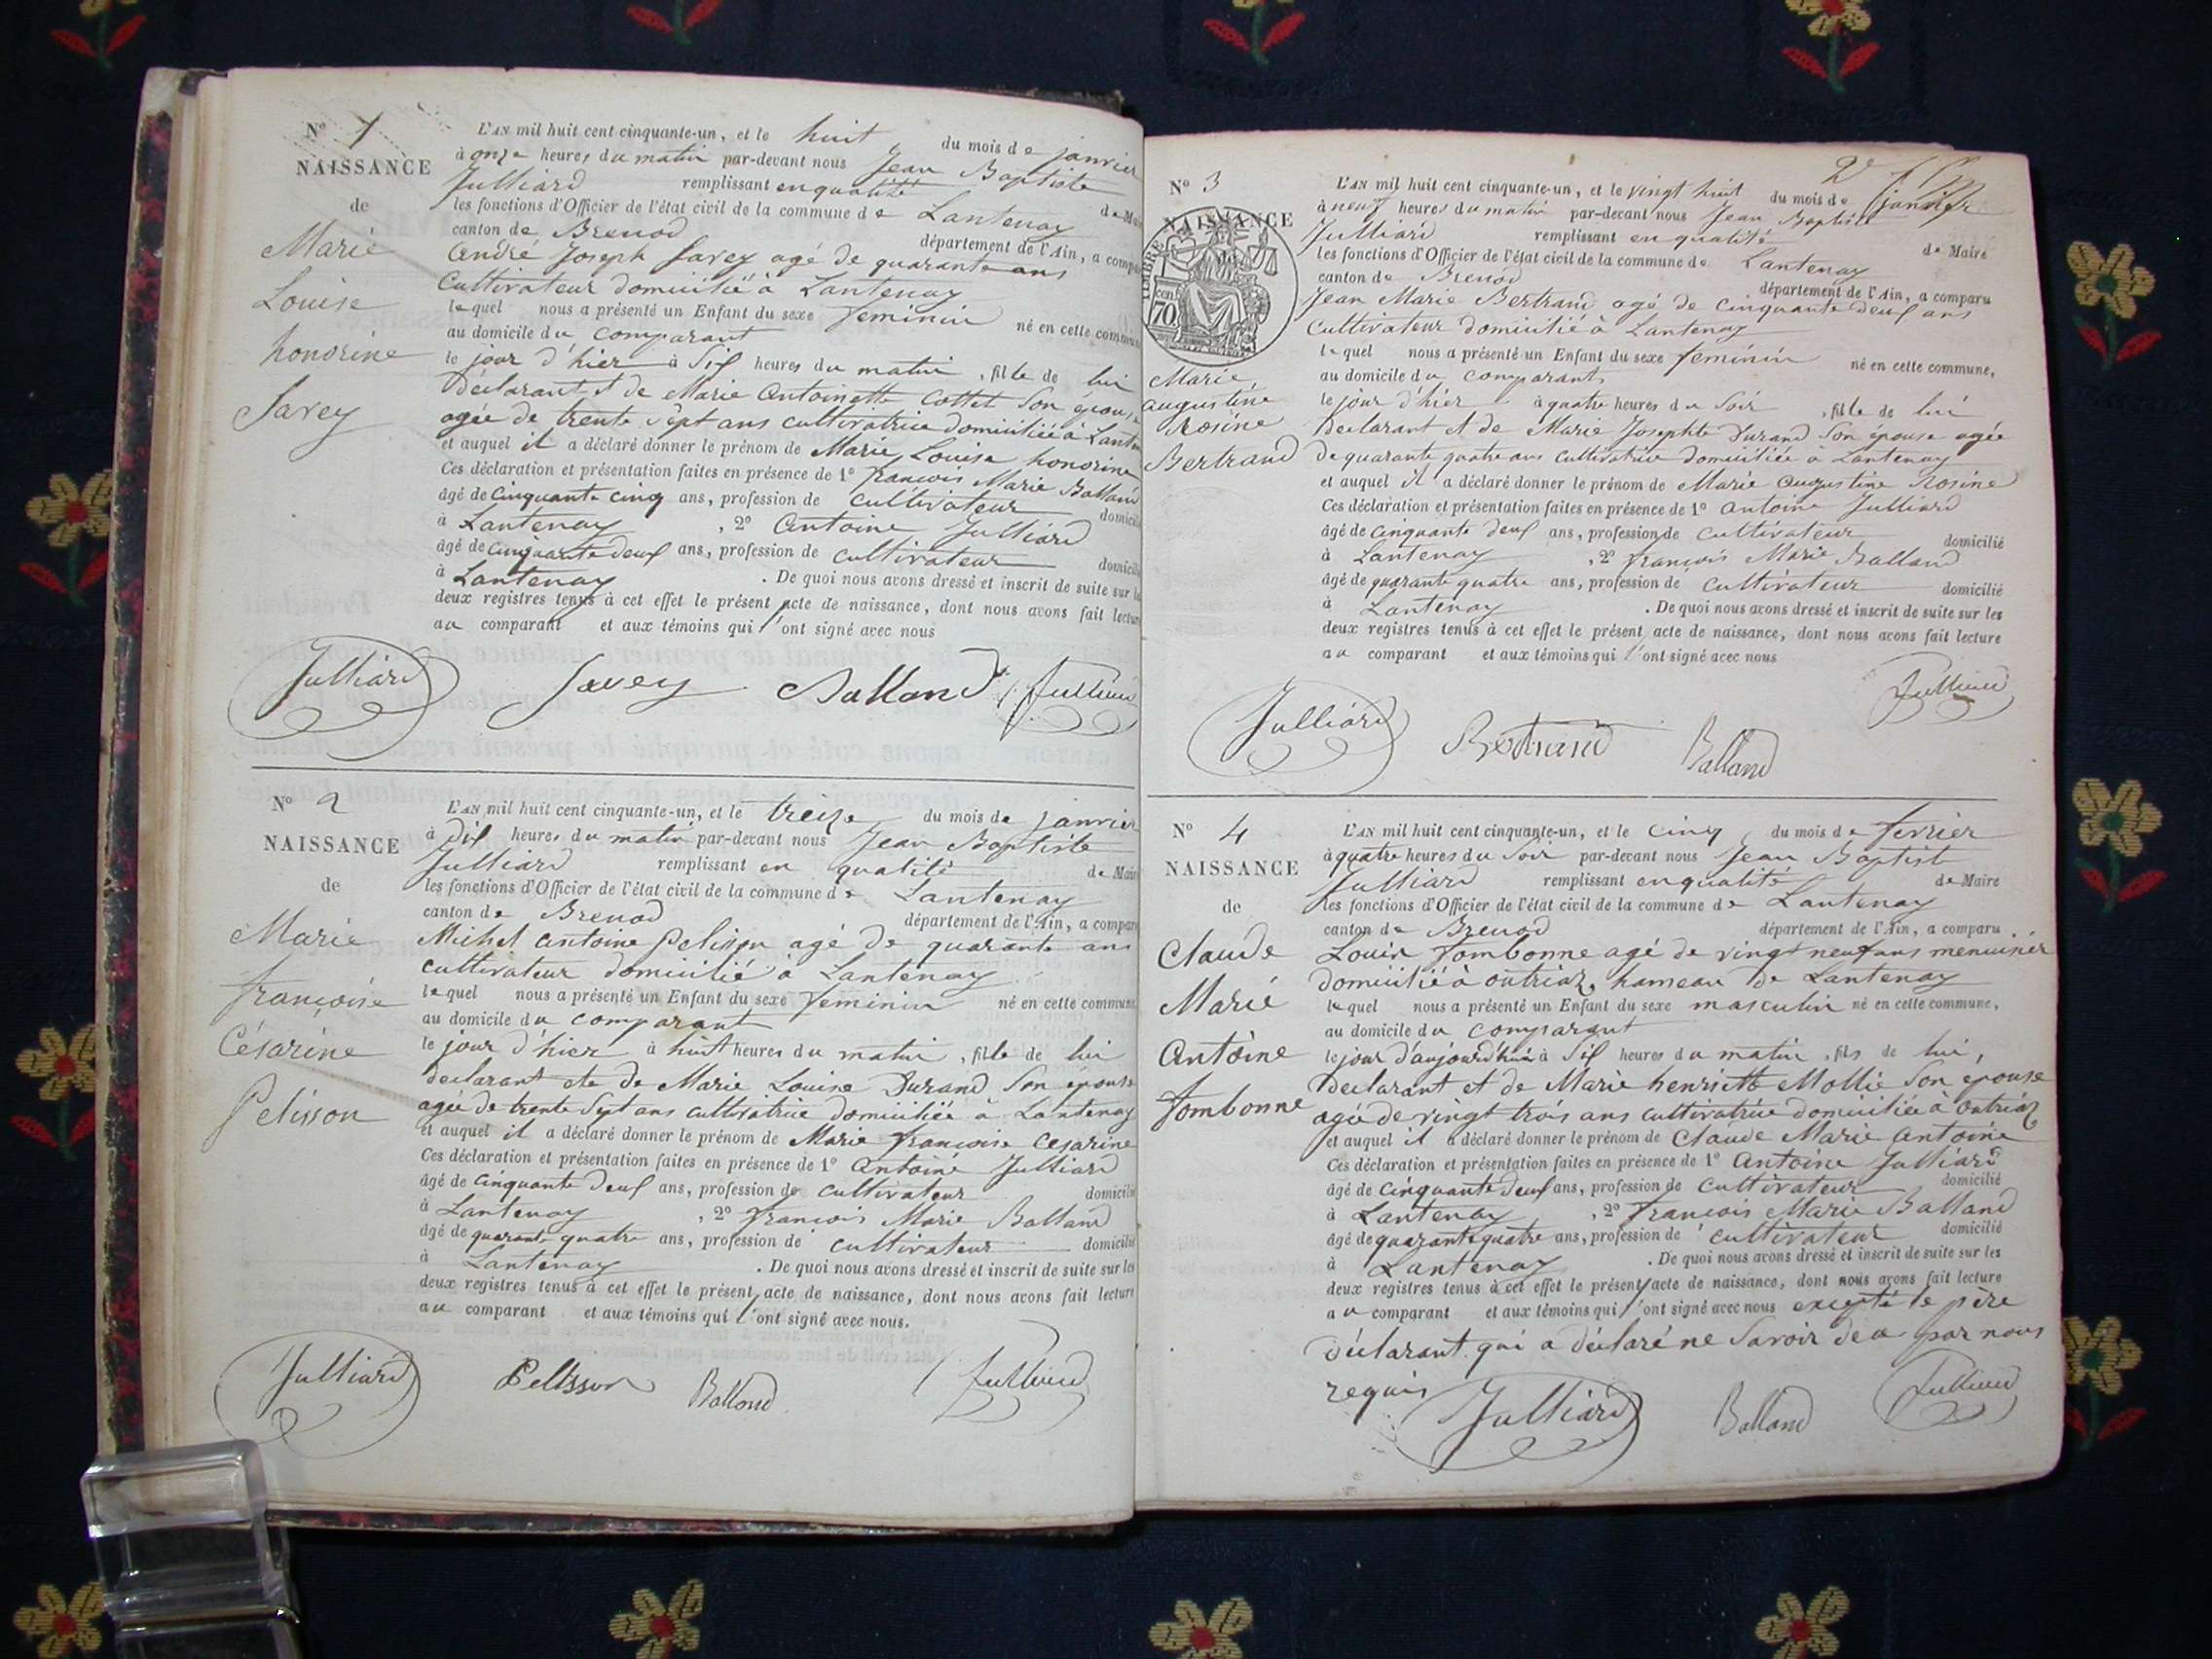 N° 1
NAISSANCE
de
Marie
Louise
honorine
Savey
L'AN mil huit cent cinquante-un, et le huit du mois de janvier
à onze heures du matin par-devant nous Jean Baptiste
Julliard remplissant en qualité de Mai
les fonctions d'Officier de l'état civil de la commune de Lantenay
canton de Brenod département de l'Ain, a compa
André Joseph Savey agé de quarante ans
Cultivateur domicilié à Lantenay
lequel nous a présenté un Enfant du sexe feminin né en cette commun
au domicile du comparant
le jour d'hier à Six heures du matin, fille de lui
Déclarant et de Marie Antoinette Cottet Son épouse
agée de trente Sept ans cultivatrice domiciliée à Lanten
et auquel il a déclaré donner le prénom de Marie Louise honorine
Ces déclaration et présentation faites en présence de 1° françois Marie Balland
âgé de cinquante cinq ans, profession de cultivateur domicilié
à Lantenay, 2° Antoine Julliard
âgé de cinquante deux ans, profession de cultivateur domicilié
à Lantenay. De quoi nous avons dressé et inscrit de suite sur le
deux registres tenus à cet effet le présent acte de naissance, dont nous avons fait lecture
au comparant et aux témoins qui l'ont signé avec nous
Julliard Savey Balland Jullierd
N° 2
NAISSANCE
de
Marie
françoise
Césarine
Pelisson
L'AN mil huit cent cinquante-un, et le treize du mois de janvier
à Dix heures du matin par-devant nous Jean Baptiste
Julliard remplissant en qualité de Mair
les fonctions d'Officier de l'état civil de la commune de Lantenay
canton de Brenod département de l'Ain, a comparu
Michel Antoine Pelisson agé de quarante ans
cultivateur domicilié à Lantenay
lequel nous a présenté un Enfant du sexe feminin né en cette commune
au domicile du comparant
le jour d'hier à huit heures du matin, fille de lui
declarant et de Marie Louise Durand Son épouse
agée de trente Sept ans cultivatrice domiciliée à Lantenay
et auquel il a déclaré donner le prénom de Marie françoise Césarine
Ces déclaration et présentation faites en présence de 1° Antoine Julliard
âgé de cinquante deux ans, profession de cultivateur domicilié
à Lantenay, 2° françois Marie Balland
âgé de quarante quatre ans, profession de cultivateur domicilié
à Lantenay. De quoi nous avons dressé et inscrit de suite sur les
deux registres tenus à cet effet le présent acte de naissance, dont nous avons fait lecture
au comparant et aux témoins qui l'ont signé avec nous.
Julliard Pelisson Balland Jullierd
2e
N° 3
NAISSANCE
TIMBRE
70
Marie
augustine
Rosine
Bertrand
L'AN mil huit cent cinquante-un, et le vingt huit du mois de janvier
à neuf heures du matin par-devant nous Jean Baptiste
Julliard remplissant en qualité de Maire
les fonctions d'Officier de l'état civil de la commune de Lantenay
canton de Brenod département de l'Ain, a comparu
Jean Marie Bertrand agé de Cinquante deux ans
Cultivateur domicilié à Lantenay
lequel nous a présenté un Enfant du sexe feminin né en cette commune,
au domicile du comparant
le jour d'hier à quatre heures du Soir, fille de lui
Declarant et de Marie Josephte Durand Son épouse agée
de quarante quatre ans cultivatrice domiciliée à Lantenay
et auquel il a déclaré donner le prénom de Marie augustine Rosine
Ces déclaration et présentation faites en présence de 1° antoine Julliard
âgé de cinquante deux ans, profession de cultivateur domicilié
à Lantenay, 2° françois Marie Balland
âgé de quarante quatre ans, profession de cultivateur domicilié
à Lantenay. De quoi nous avons dressé et inscrit de suite sur les
deux registres tenus à cet effet le présent acte de naissance, dont nous avons fait lecture
au comparant et aux témoins qui l'ont signé avec nous
Julliard Bertrand Balland Jullierd
N° 4
NAISSANCE
de
Claude
Marie
Antoine
Tombonne
L'AN mil huit cent cinquante-un, et le cinq du mois de fevrier
à quatre heures du Soir par-devant nous Jean Baptiste
Julliard remplissant en qualité de Maire
les fonctions d'Officier de l'état civil de la commune de Lantenay
canton de Brenod département de l'Ain, a comparu
Louis Tombonne agé de vingt neuf ans menuisier
domicilié à Outriaz, hameau de Lantenay
lequel nous a présenté un Enfant du sexe masculin né en cette commune,
au domicile du comparant
le jour d'aujourd'hui à Six heures du matin, fils de lui,
Declarant et de Marie henriette Mollie Son épouse
agée de vingt trois ans cultivatrice domiciliée à Outriaz
et auquel il a déclaré donner le prénom de Claude Marie antoine
Ces déclaration et présentation faites en présence de 1° Antoine Julliard
âgé de cinquante deux ans, profession de cultivateur domicilié
à Lantenay, 2° françois Marie Balland
âgé de quarante quatre ans, profession de cultivateur domicilié
à Lantenay. De quoi nous avons dressé et inscrit de suite sur les
deux registres tenus à cet effet le présent acte de naissance, dont nous avons fait lecture
au comparant et aux témoins qui l'ont signé avec nous excepté le père
déclarant qui a déclaré ne Savoir de ce par nous
requis
Julliard Balland Jullierd